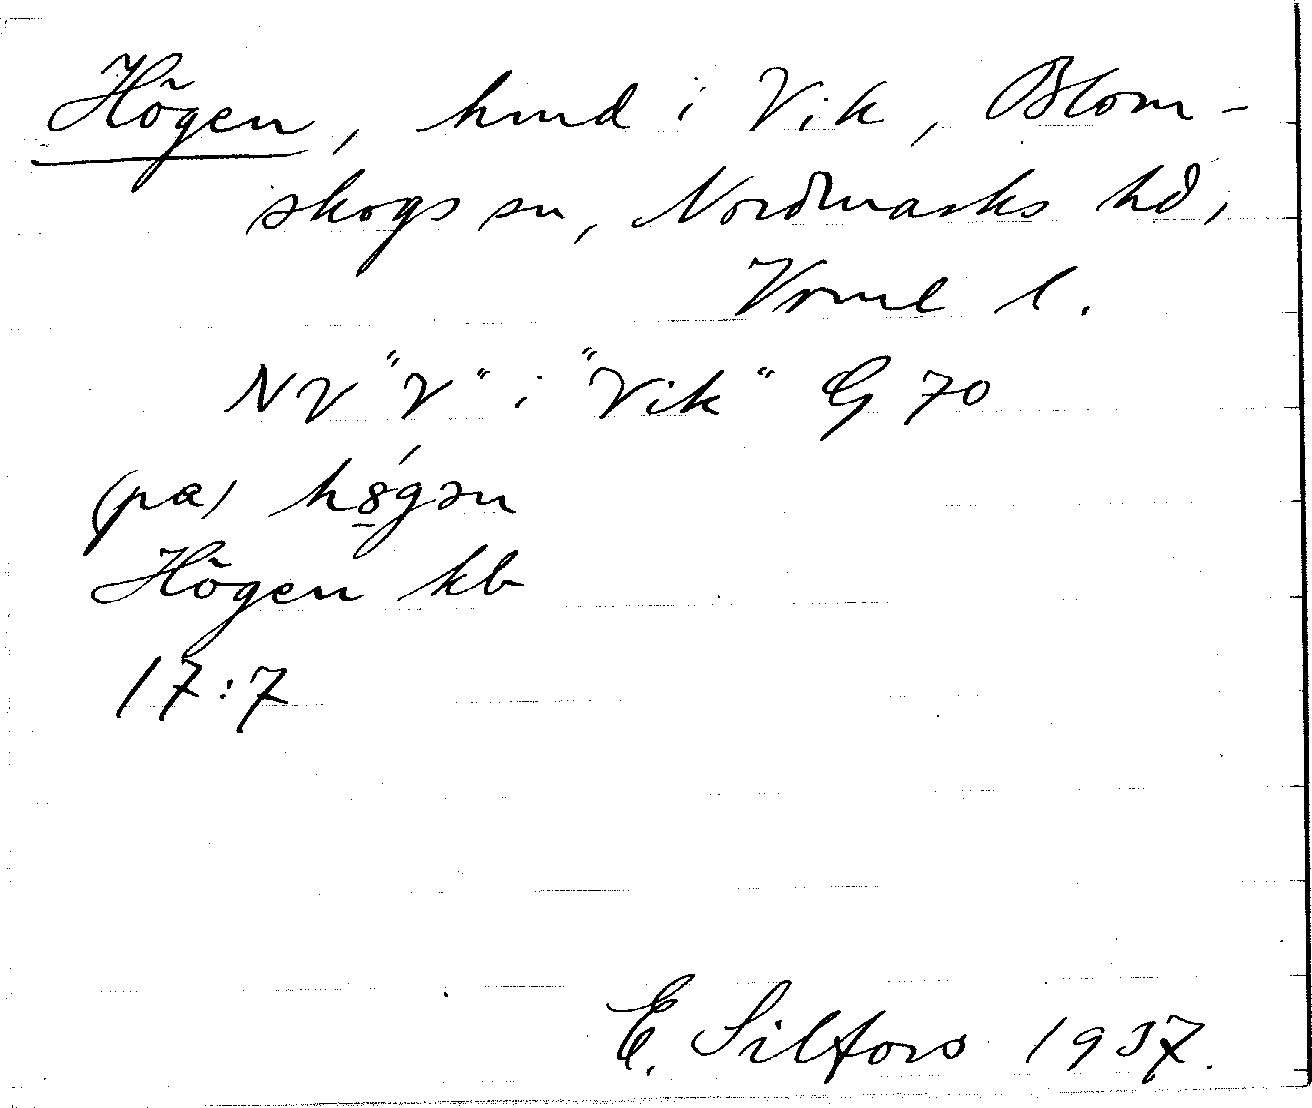 Högen, hmd i Vik, Blom-
skogs sn, Nordmarks hd,
Vrml l.
NV "V" i "Vik" G 70
(pa) hȣ̱́gən
Högen kb
17:7
E. Silfors 1937.